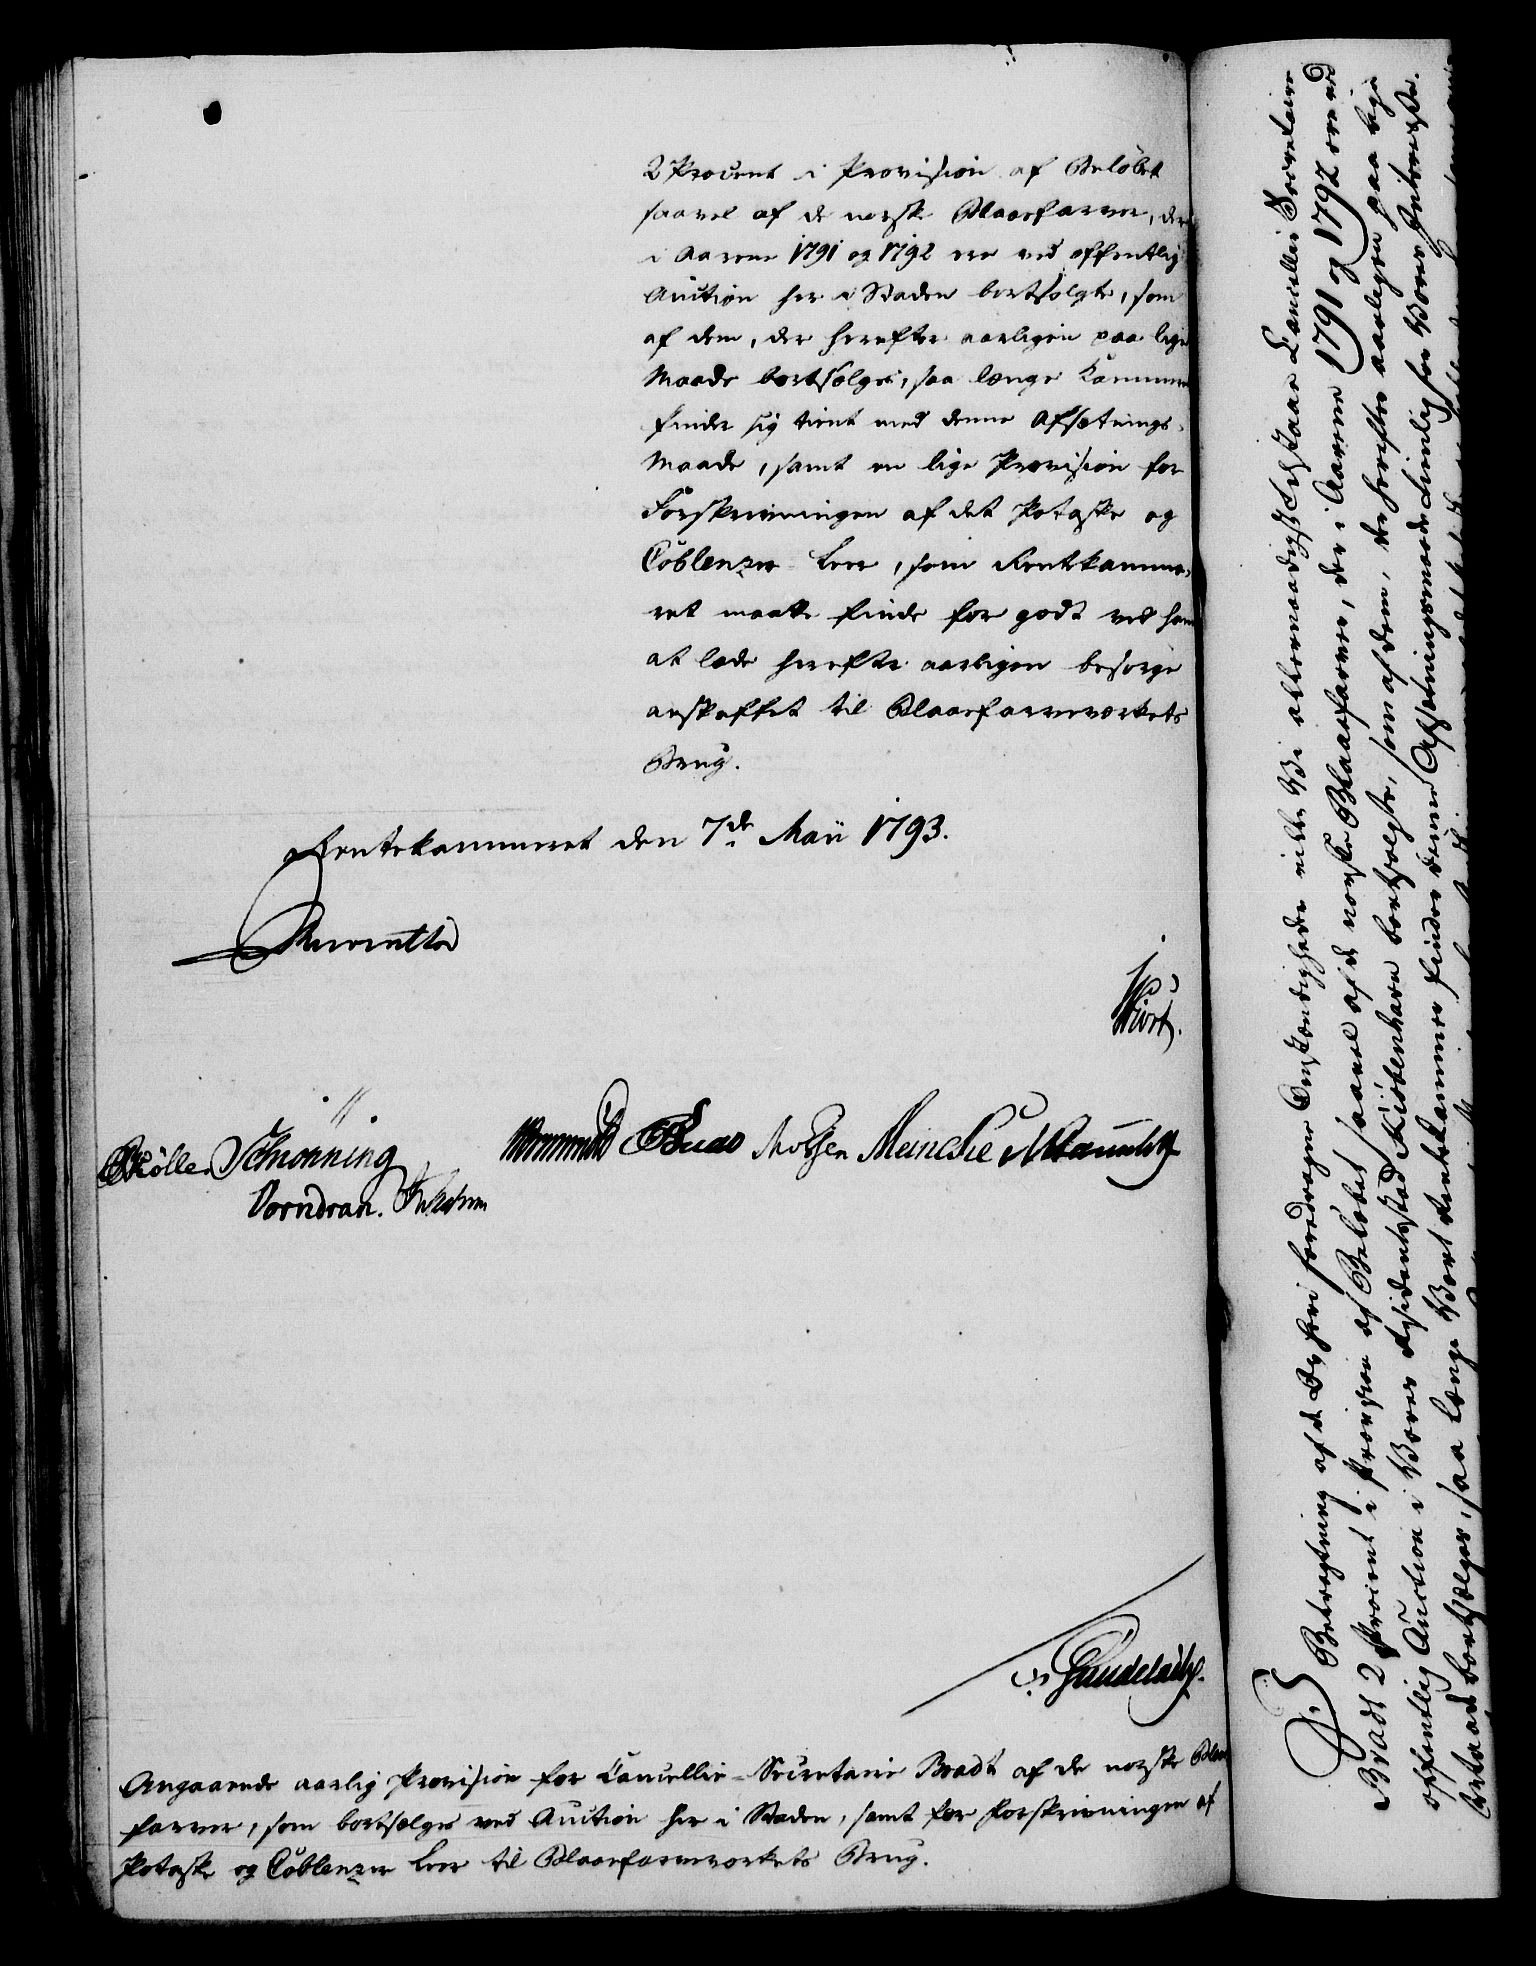 2 Procent i Provision af Beløbet
saavel af de norske Blaaefarver, der
i Aarene 1791 og 1792 ere ved offentlig
Auction her i Staden bortsolgte, som
af dem, der herefter aarligen paa lige
Maade bortsælges, saa længe Kammeret
finder sig tient med denne Afsætnings-
Maade, samt en lige Provision for
Forskrivningen af det Potaske og
Coblenzer Leer, som Rentekamme-
ret maatte finde for godt ved ham
at lade herefter aarligen besørge
anskaffet til Blaaefarveværkets
Brug.
Rentekammeret den 7de Maii 1793.
Reventlow
Hiort.
Møller Schønning Wormskiold Buas Meincke
Vorndran.
Gundelach.
Angaaende aarlig Provision for Cancellie-Secretaire Bradt af de norske Blaae
farver, som bortsælges ved Auction her i Staden, samt for Forskrivningen af
Potaske og Coblenzer Leer til Blaaefarveværkets Brug.
I Betragtning af de os heri foredragne Omstændigheder ville Vi allernaadigst tilstaae Cancellie Secretaire
Bradt 2 Procent i Provision af Beløbet saavel af de norske Blaaefarver, der i Aarene 1791 og 1792 ere ved
offentlig Auction i Vores Residentsstad Kiøbenhavn bortsolgte, som af dem, der herefter aarligen paa lige
Maade bortsælges, saa længe Vort Rentekammer finder denne Afsætningsmaade tienlig for Vores Interesse.